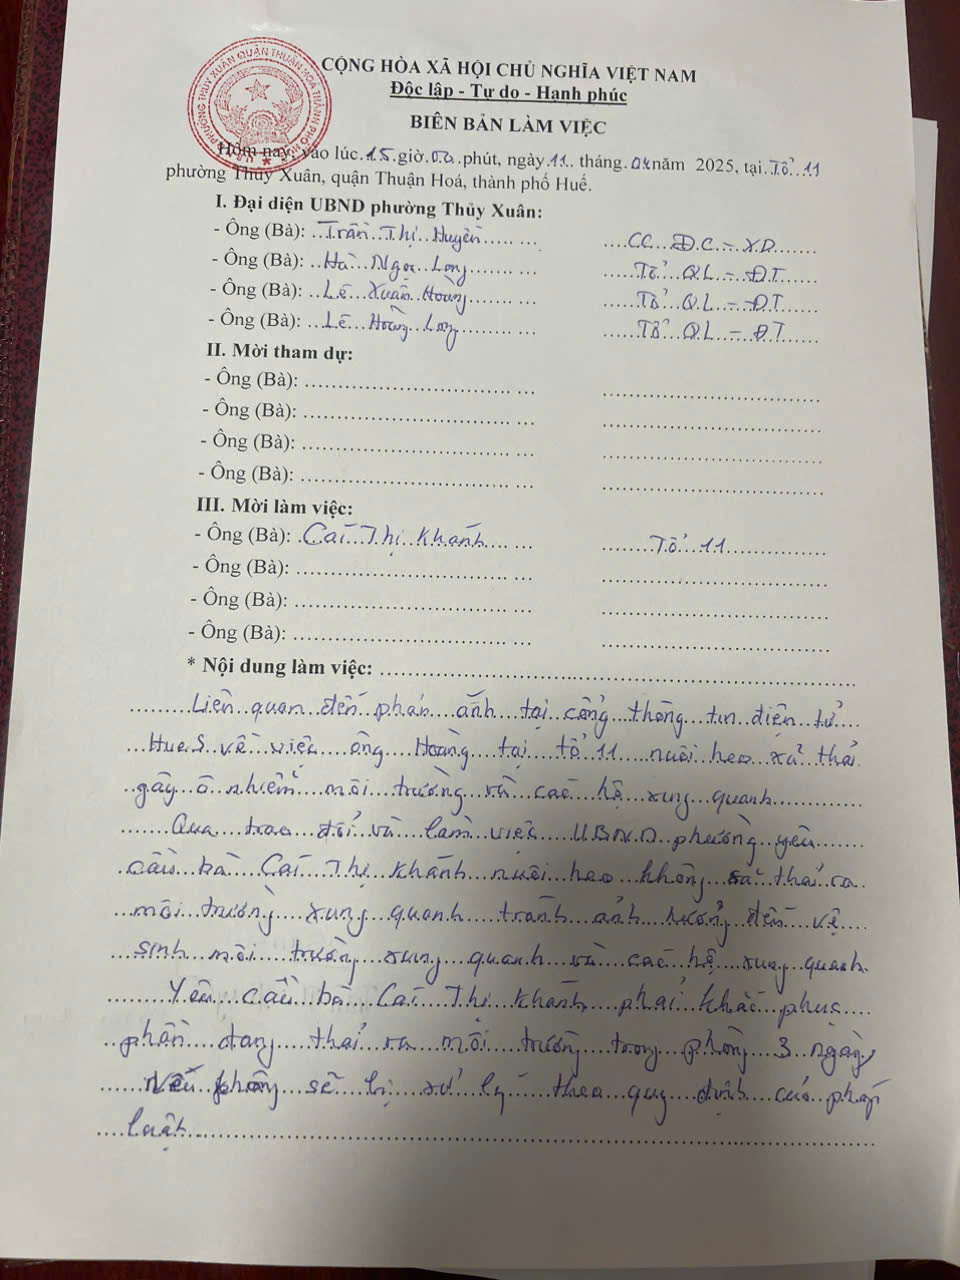 CỘNG HÒA XÃ HỘI CHỦ NGHĨA VIỆT NAM
Độc lập - Tự do - Hạnh phúc
BIÊN BẢN LÀM VIỆC
Hôm nay, vào lúc 15 giờ 00 phút, ngày 11 tháng 04 năm 2025, tại Tổ 11
phường Thủy Xuân, quận Thuận Hoá, thành phố Huế.
I. Đại diện UBND phường Thủy Xuân:
- Ông (Bà): Trần Thị Huyền CC ĐC - XD
- Ông (Bà): Hà Ngọc Long Tổ QL - ĐT
- Ông (Bà): Lê Xuân Hoàng Tổ QL - ĐT
- Ông (Bà): Lê Hoàng Long Tổ QL - ĐT
II. Mời tham dự:
- Ông (Bà):
- Ông (Bà):
- Ông (Bà):
- Ông (Bà):
III. Mời làm việc:
- Ông (Bà): Cái Thị Khánh Tổ 11
- Ông (Bà):
- Ông (Bà):
- Ông (Bà):
* Nội dung làm việc:
Liên quan đến phản ánh tại cổng thông tin điện tử
HueS về việc ông Hoàng tại tổ 11 nuôi heo xả thải
gây ô nhiễm môi trường và các hộ xung quanh
Qua trao đổi và làm việc UBND phường yêu
cầu bà Cái Thị Khánh nuôi heo không xả thải ra
môi trường xung quanh tránh ảnh hưởng đến vệ
sinh môi trường xung quanh và các hộ xung quanh.
Yêu cầu bà Cái Thị Khánh phải khắc phục
phần đang thải ra môi trường trong phòng 3 ngày
Nếu không sẽ bị xử lý theo quy định của pháp
luật